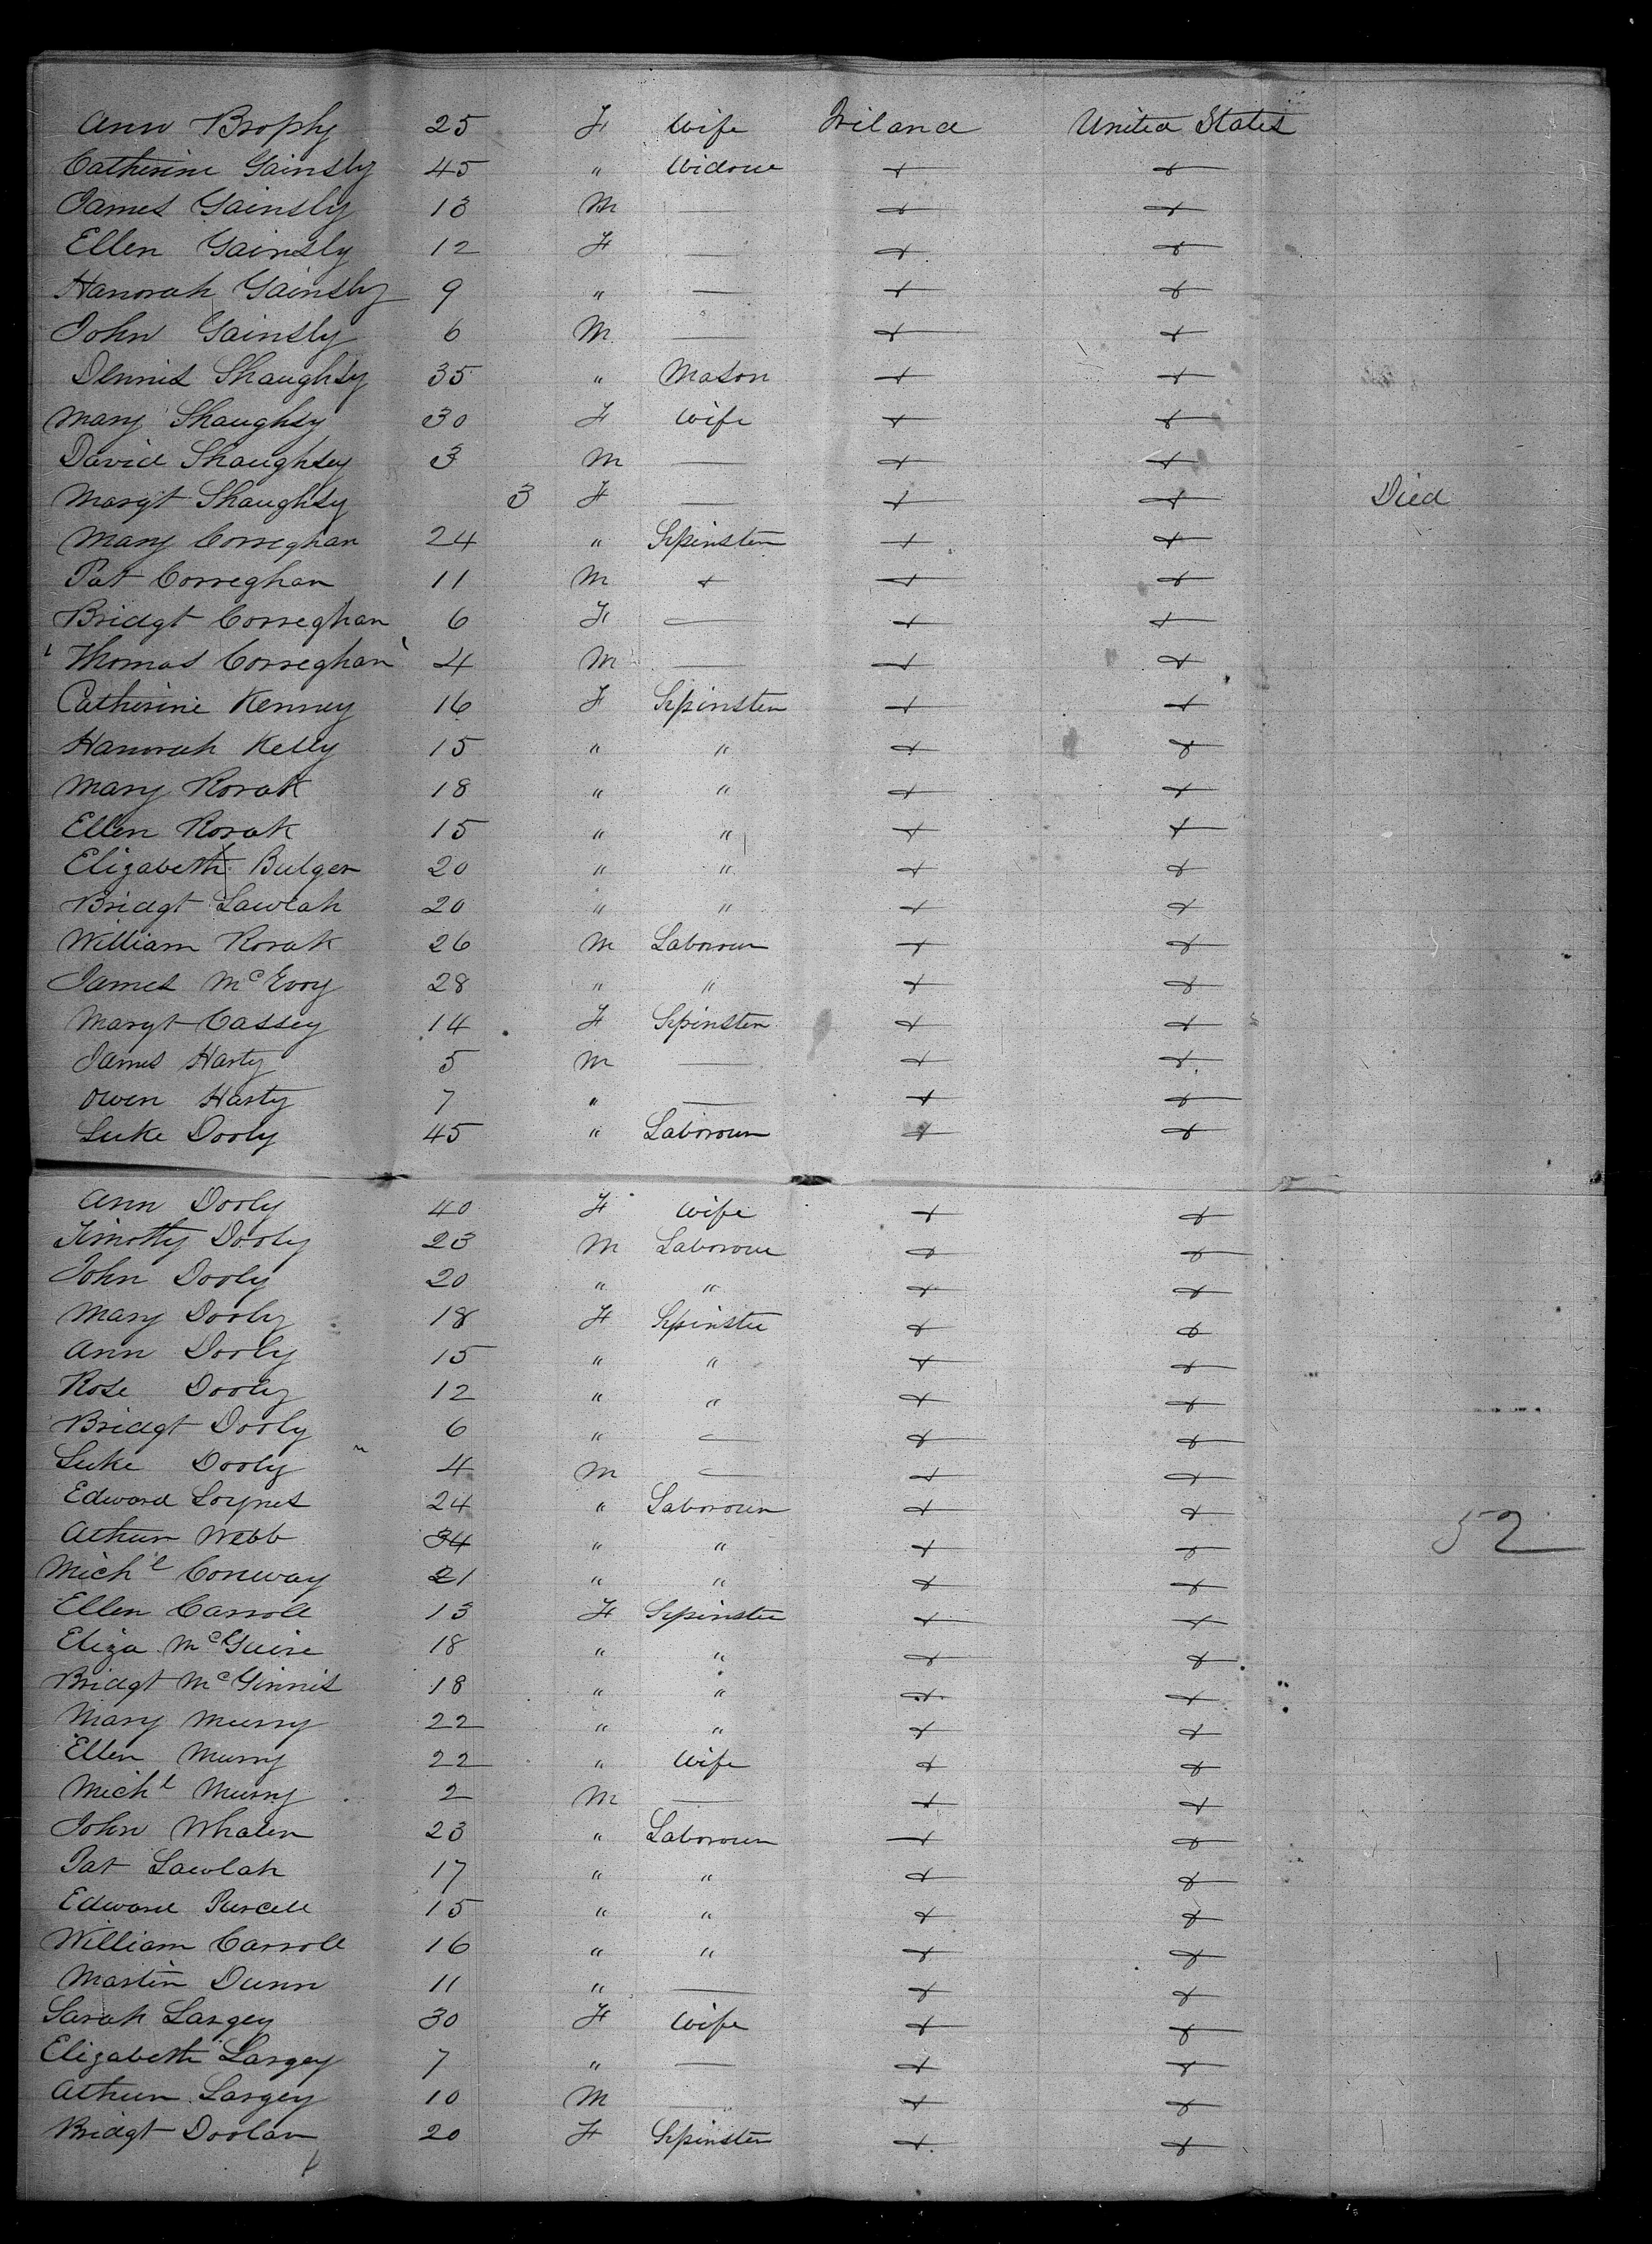 Ann Brophy 25 F Wife Ireland United States
Catherine Gainsly 45 " Widow + +
James Gainsly 13 M — + +
Ellen Gainsly 12 F — + +
Hanorah Gainsly 9 " — + +
John Gainsly 6 M — + +
Dennis Shaughsy 35 " Mason + +
Mary Shaughsy 30 F Wife + +
David Shaughsy 3 M — + +
Margt Shaughsy 3 F — + + Died
Mary Correghan 24 " Spinster + +
Pat Correghan 11 M + + +
Bridgt Correghan 6 F — + +
Thomas Correghan 4 M — + +
Catherine Kenney 16 F Spinster + +
Hanorah Kelly 15 " " + +
Mary Rorak 18 " " + +
Ellen Rorak 15 " " + +
Elizabeth Bulger 20 " " + +
Bridgt Lawlah 20 " " + +
William Rorak 26 M Laborour + +
James McEvoy 28 " " + +
Margt Cassey 14 F Spinster + +
James Harty 5 M — + +
Owen Harty 7 " — + +
Luke Dooly 45 " Laborour + +
Ann Dooly 40 F Wife + +
Timothy Dooly 23 M Laborour + +
John Dooly 20 " " + +
Mary Dooly 18 F Spinster + +
Ann Dooly 15 " " + +
Rose Dooly 12 " " + +
Bridgt Dooly 6 " — + +
Luke Dooly 4 M — + +
Edward Loynes 24 " Laborour + +
Athur Webb 34 " " + +
Michl Conway 21 " " + +
Ellen Carroll 13 F Spinster + +
Eliza McGuire 18 " " + +
Bridgt McGinnis 18 " " + +
Mary Murry 22 " " + +
Ellen Murry 22 " Wife + +
Michl Murry 2 M — + +
John Whalen 23 " Laborour + +
Pat Lawlah 17 " " + +
Edward Purcell 15 " " + +
William Carroll 16 " " + +
Martin Dunn 11 " — + +
Sarah Largey 30 F Wife + +
Elizabeth Largey 7 " — + +
Athur Largey 10 M — + +
Bridgt Doolan 20 F Spinster + +
52